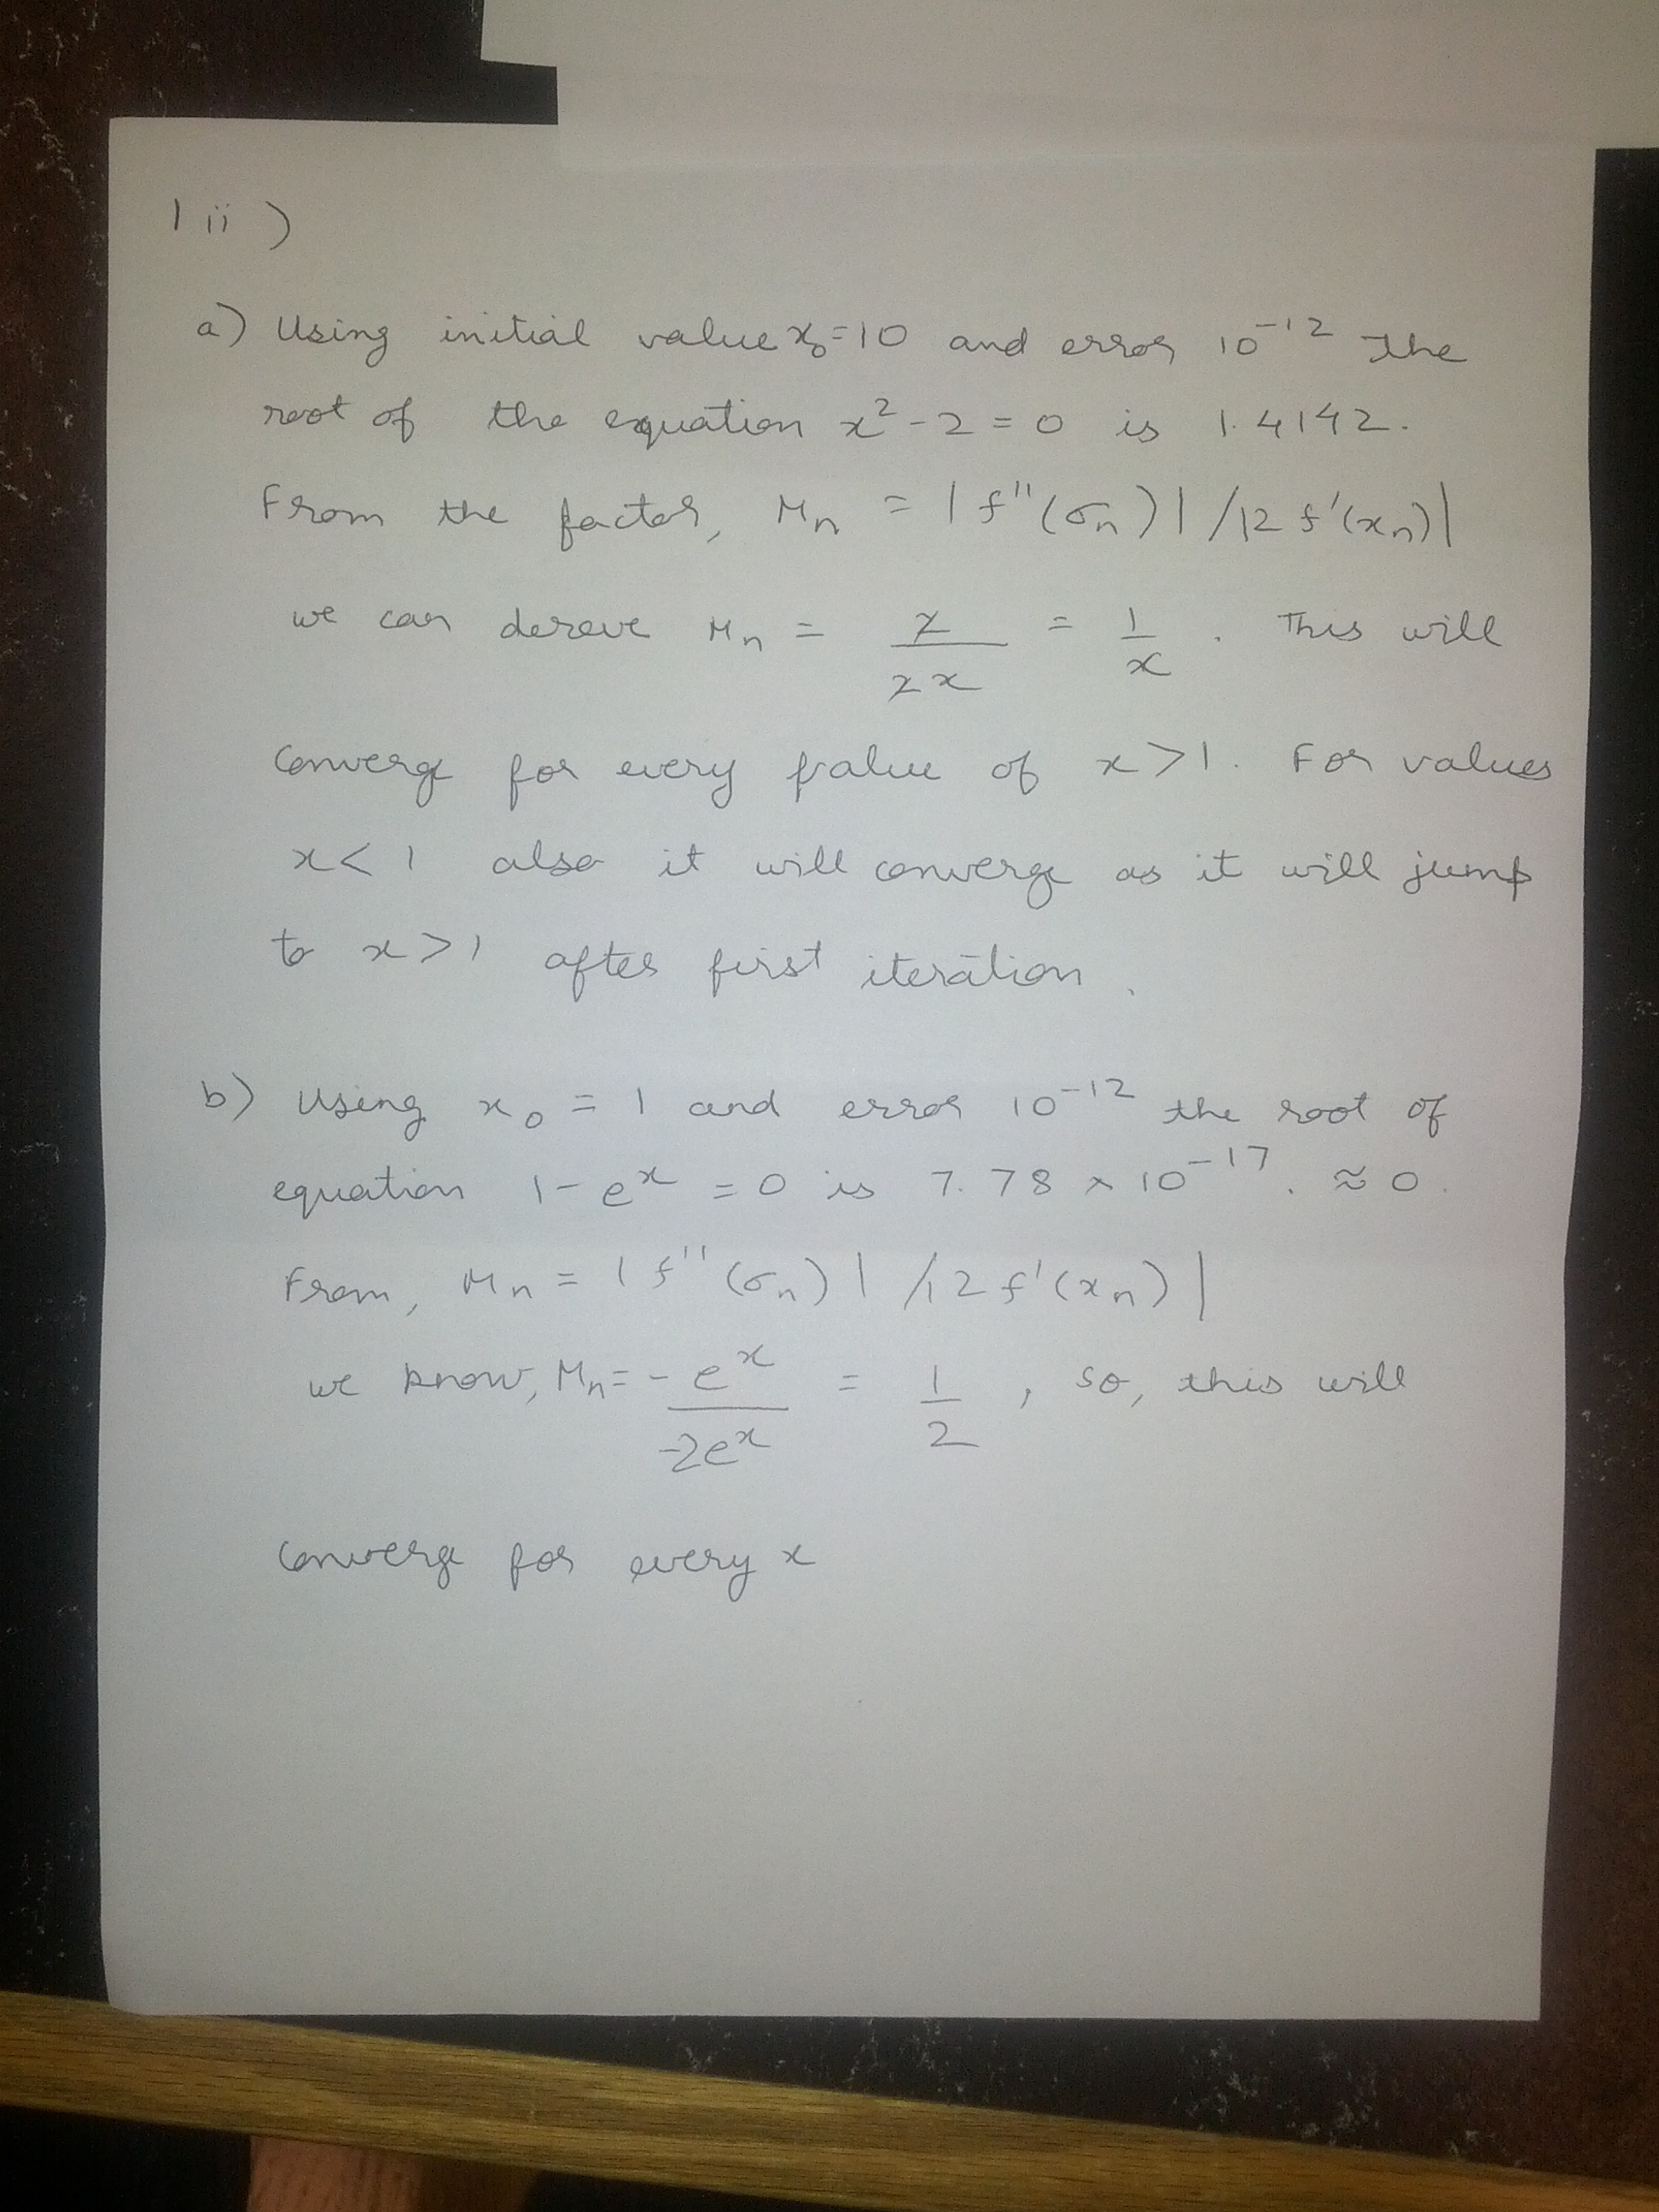 1 ii)
a) Using initial value x₀=10 and error 10⁻¹² the
root of the equation x²-2=0 is 1.4142.
From the factor, Mn = |f''(σn)|/|2f'(xn)|
we can dereve Mn = 2/2x = 1/x. This will
Converge for every value of x>1. For values
x<1 also it will converge as it will jump
to x>1 after first iteration.
b) Using x₀ = 1 and error 10⁻¹² the root of
equation 1-eˣ = 0 is 7.78 × 10⁻¹⁷. ≈ 0.
From, Mn = |f''(σn)|/|2f'(xn)|
we know, Mn = -eˣ/-2eˣ = 1/2, so, this will
Converge for every x